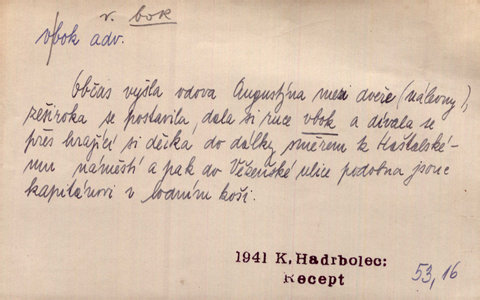 v. bok
vbok adv.
Občas vyšla vdova Augustýna mezi dveře (nálevny),
zeširoka se postavila, dala si ruce vbok a dívala se
přes hrající si děcka do dálky směrem k Haštalské-
mu náměstí a pak do Vězeňské ulice podobna jsouc
kapitánovi v lodním koši.
1941 K. Hadrbolec:
Recept
53, 16